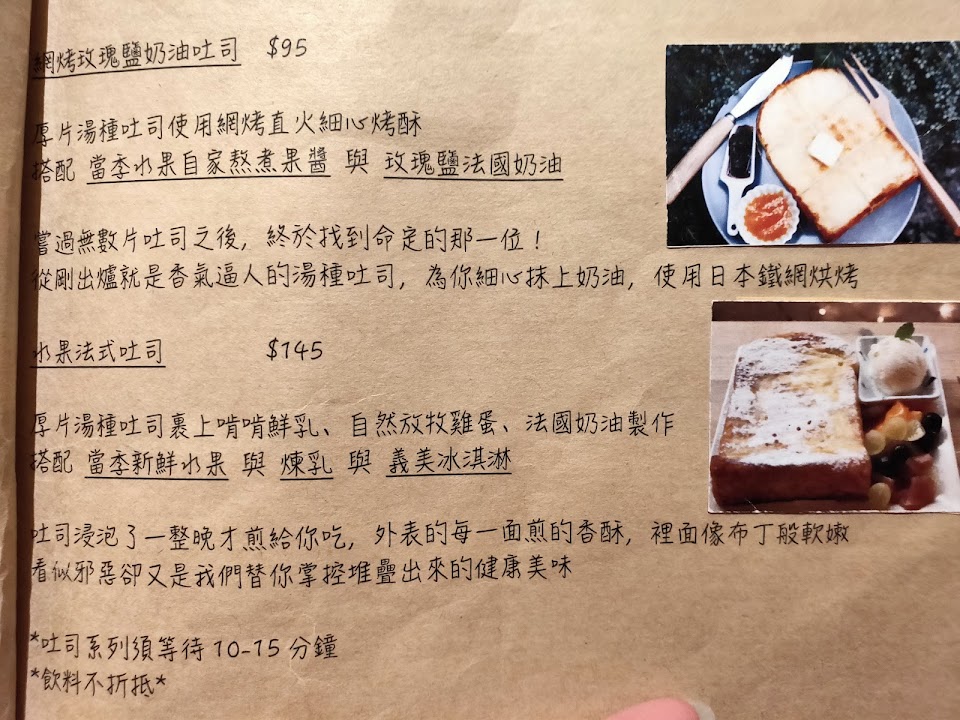 網烤玫瑰鹽奶油吐司 $95
厚片湯種吐司使用網烤直火細心烤酥
搭配 當季水果自家熬煮果醬 與 玫瑰鹽法國奶油
嘗過無數片吐司之後，終於找到命定的那一位！
從剛出爐就是香氣逼人的湯種吐司，為你細心抹上奶油，使用日本鐵網烘烤
水果法式吐司 $145
厚片湯種吐司裹上啃啃鮮乳、自然放牧雞蛋、法國奶油製作
搭配 當季新鮮水果 與 煉乳 與 義美冰淇淋
吐司浸泡了一整晚才煎給你吃，外表的每一面煎的香酥，裡面像布丁般軟嫩
看似邪惡卻又是我們替你掌控堆疊出來的健康美味
*吐司系列須等待 10-15 分鐘
*飲料不折抵*